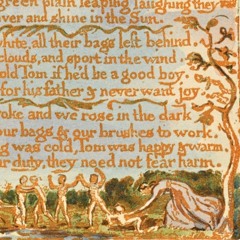 green plain leaping laughing they
ver and shine in the Sun.
white, all their bags left behind
clouds, and sport in the wind
old Tom if he'd be a good boy
for his father & never want joy
oke and we rose in the dark
our bags & our brushes to work.
g was cold, Tom was happy & warm
ur duty, they need not fear harm.